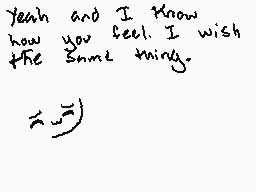 Yeah and I know
how you feel. I wish
the same thing.